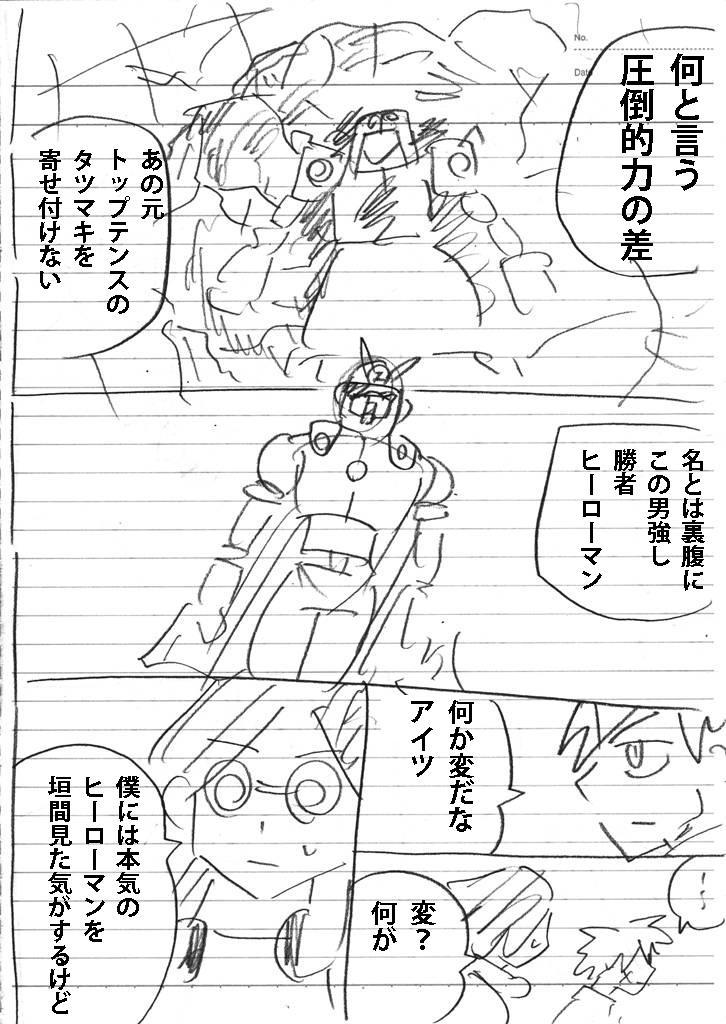 No.
Date
何と言う
圧倒的力の差
あの元
トップテンスの
タツマキを
寄せ付けない
名とは裏腹に
この男強し
勝者
ヒーローマン
何か変だな
アイツ
僕には本気の
ヒーローマンを
垣間見た気がするけど
変？
何が